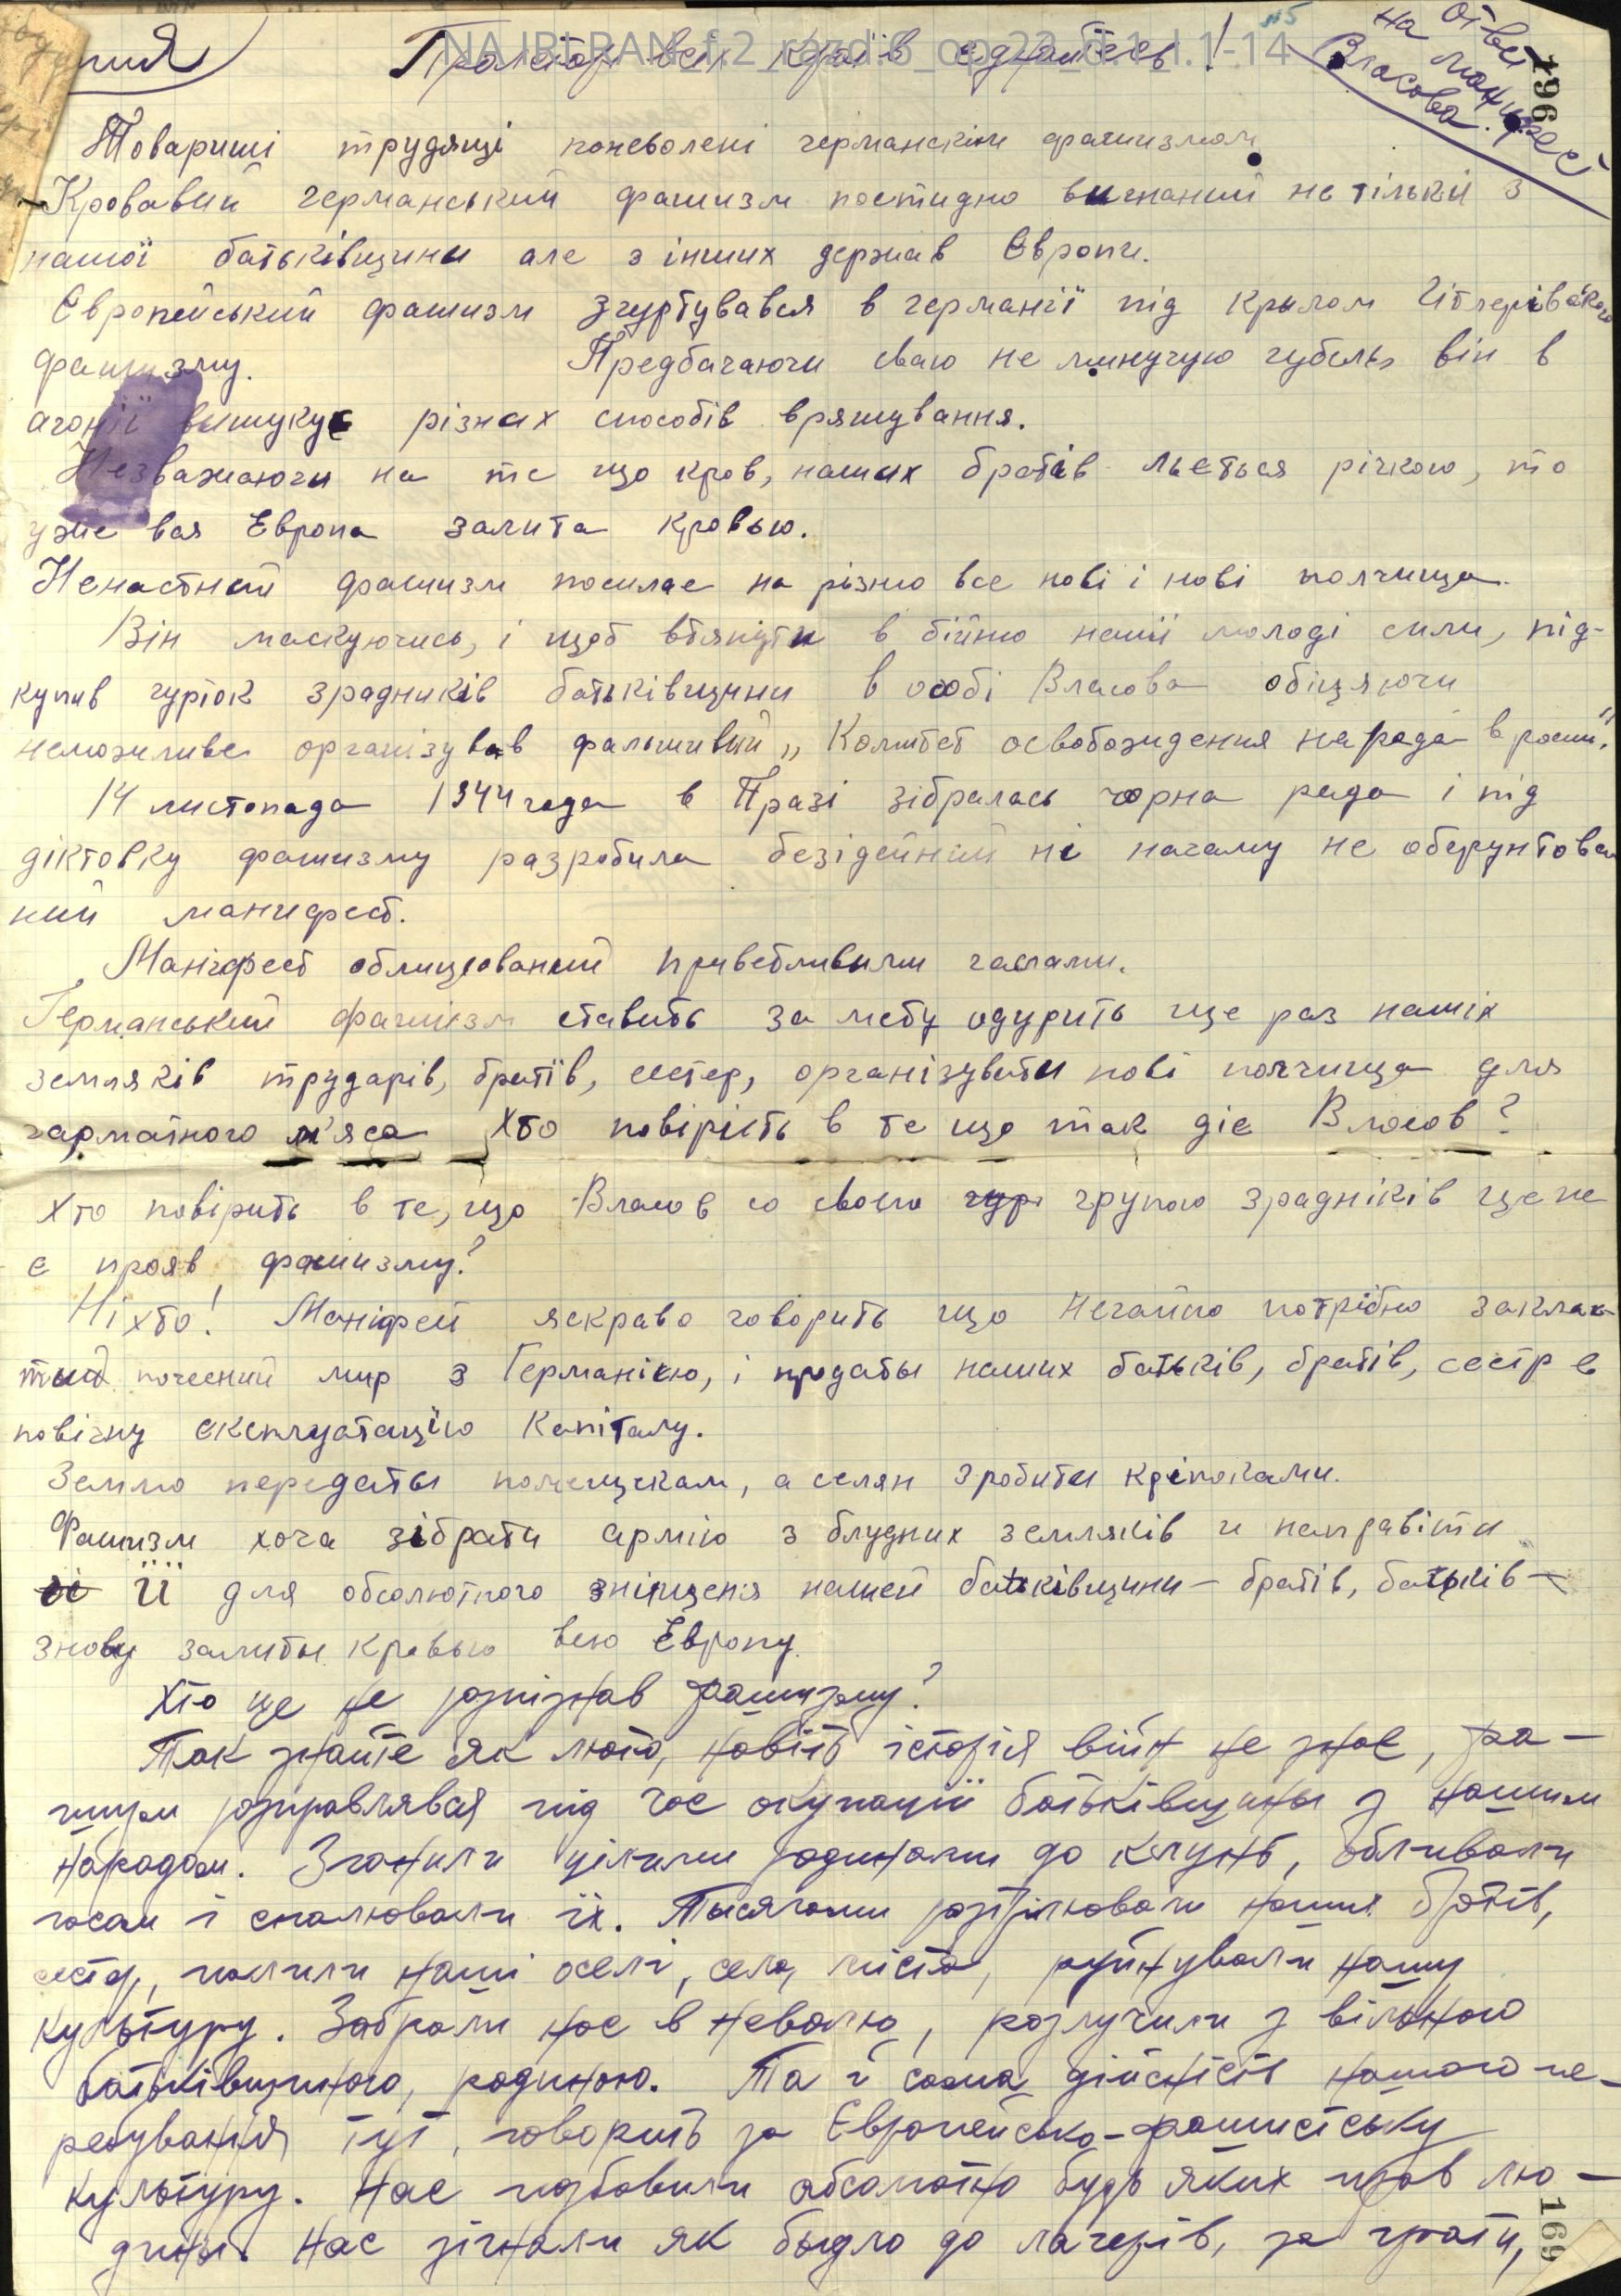 Пролетарі всіх країв єднайтесь!
NA IRI RAN f.2_razd.3_op.22_d.1_l.1-14
№5
на ответ
манифест
Власова.
196
Товариші трудящі поневолені германскім фашизмом
Кровавий германський фашизм постидно вигнаний не тільки з
нашої батьківщини але з інших держав Європи.
Європейський фашизм згуртувався в германії під крилом Гітлерівского
фашизму. Предбачаючи сваю не минучую губель він в
агонії вишукує різних способів врятування.
Незважаючи на те що кров, наших братів льеться річкою, то
уже вся Европа залита кровью.
Ненастний фашизм посилає на різню все нові і нові полчища.
Він маскуючись, і щоб втянути в бійню наші молоді сили, під-
купив гурток зрадників батьківщини в особі Власова обіцяючи
неможливе організував фальшивий „Комитет освобождения народа в росии".
14 листопада 1944 года в Празі зібралась чорна рада і під
діктовку фашизму разробила безідейний ні начаму не обгрунтован
ний манифест.
Маніфест облицюваний приветливыми гаслами.
Германський фашизм ставить за мету одурить ще раз наших
земляків трударів, братів, сестер, організувати нові полчища для
гарматного м'яса Хто повірить в те що так діє Власов?
Хто повірить в те, що Власов со своєю групою зрадніків ще не
є прояв фашизму?
Ніхто! Маніфест яскраво говорить що негайно потрібно заклю-
тий почесний мир з Германією, і продаты наших батьків, братів, сестр в
повічну експлуатацію капіталу.
Землю передаты помещикам, а селян зробити кріпаками.
Фашизм хоча зібрати армію з блудних земляків и направити
її для абсолютного зніщеня нашей батьківщини – братів, батьків –
знову залиты кровью всю Європу.
Хто ще не розпізнав фашизму?
Так знайте як люто, навіть історія війн не знає, фа-
шизм розправлявся під час окупації батьківщины з нашим
народом. Зганяли цілими родинами до клунь, обливали
гасам і спалювали їх. Тысячами розтрілювали наших братів,
сестер, палили наші оселі, села, міста, руйнували нашу
культуру. Забрали нас в неволю, розлучили з вільною
батьківщиною, родиною. Та й сама дійсність нашого пе-
ребування тут, говорить за Європейсько-фашистську
культуру. Нас избавили абсолютно будь яких прав лю-
дины. Нас зігнали як быдло до лагерів, за грати,
169